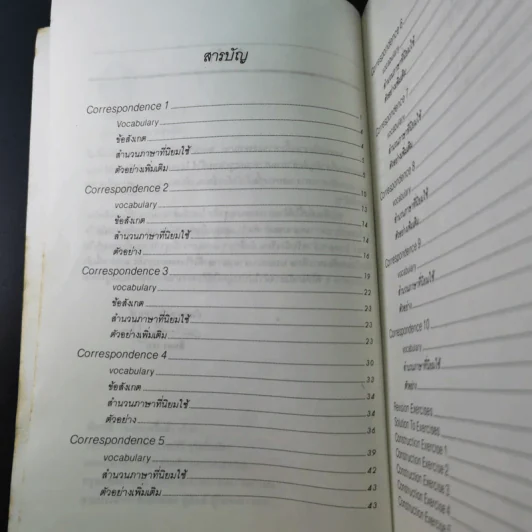 สารบัญ
Correspondence 1 1
Vocabulary 4
ข้อสังเกต 4
สำนวนภาษาที่นิยมใช้ 5
ตัวอย่างเพิ่มเติม
Correspondence 2 10
vocabulary 13
ข้อสังเกต 14
สำนวนภาษาที่นิยมใช้ 14
ตัวอย่าง 16
Correspondence 3 19
vocabulary 22
ข้อสังเกต 23
สำนวนภาษาที่นิยมใช้ 23
ตัวอย่างเพิ่มเติม 23
Correspondence 4 30
vocabulary 32
ข้อสังเกต 34
สำนวนภาษาที่นิยมใช้ 34
ตัวอย่าง 36
Correspondence 5 39
vocabulary 42
สำนวนภาษาที่นิยมใช้ 43
ตัวอย่างเพิ่มเติม 43
Correspondence 6
vocabulary
สำนวนภาษาที่นิยมใช้
ตัวอย่างเพิ่มเติม
Correspondence 7
vocabulary
สำนวนภาษาที่นิยมใช้
ตัวอย่างเพิ่มเติม
Correspondence 8
vocabulary
สำนวนภาษาที่นิยมใช้
ตัวอย่างเพิ่มเติม
Correspondence 9
vocabulary
สำนวนภาษาที่นิยมใช้
ตัวอย่าง
Correspondence 10
vocabulary
สำนวนภาษาที่นิยมใช้
ตัวอย่าง
Revision Exercises
Solution To Exercises
Construction Exercise 1
Construction Exercise 2
Construction Exercise 3
Construction Exercise 4
Construction Exercise